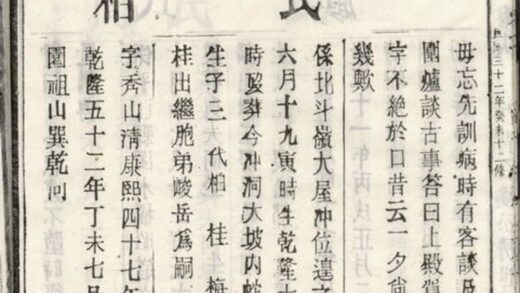 三十二年癸未十二修
毋忘先訓病時有客談
圍爐談古事答曰上殿駕
字不絕於口昔云一夕尙
幾歟
氏
係北斗嶺大屋冲位遑之
六月十九寅時生乾隆
時歿葬今冲洞大坡内蛇
生子三代柏 桂 梅
桂出繼胞弟峻岳爲嗣
柏
字秀山清康熙四十七年
乾隆五十二年丁未七月
圍祖山巽乾向